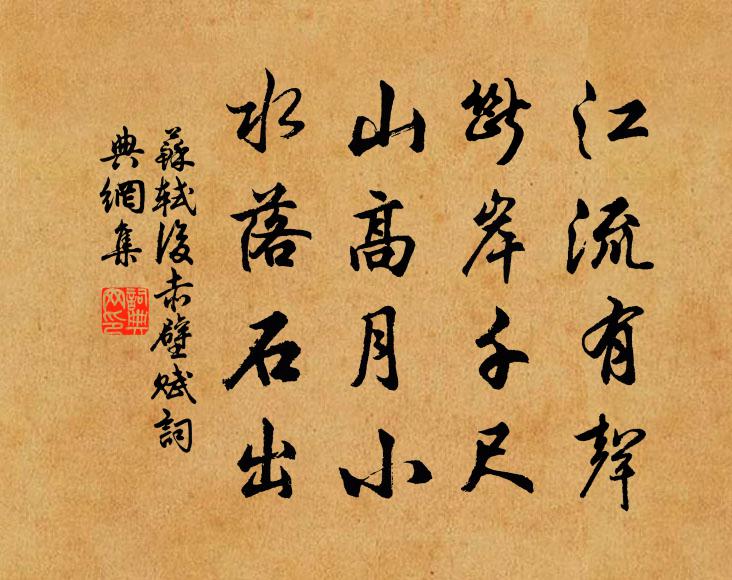 江流有聲
斷岸千尺
山高月小
水落石出
蘇軾後赤壁賦詞
典網集
詞典
网印